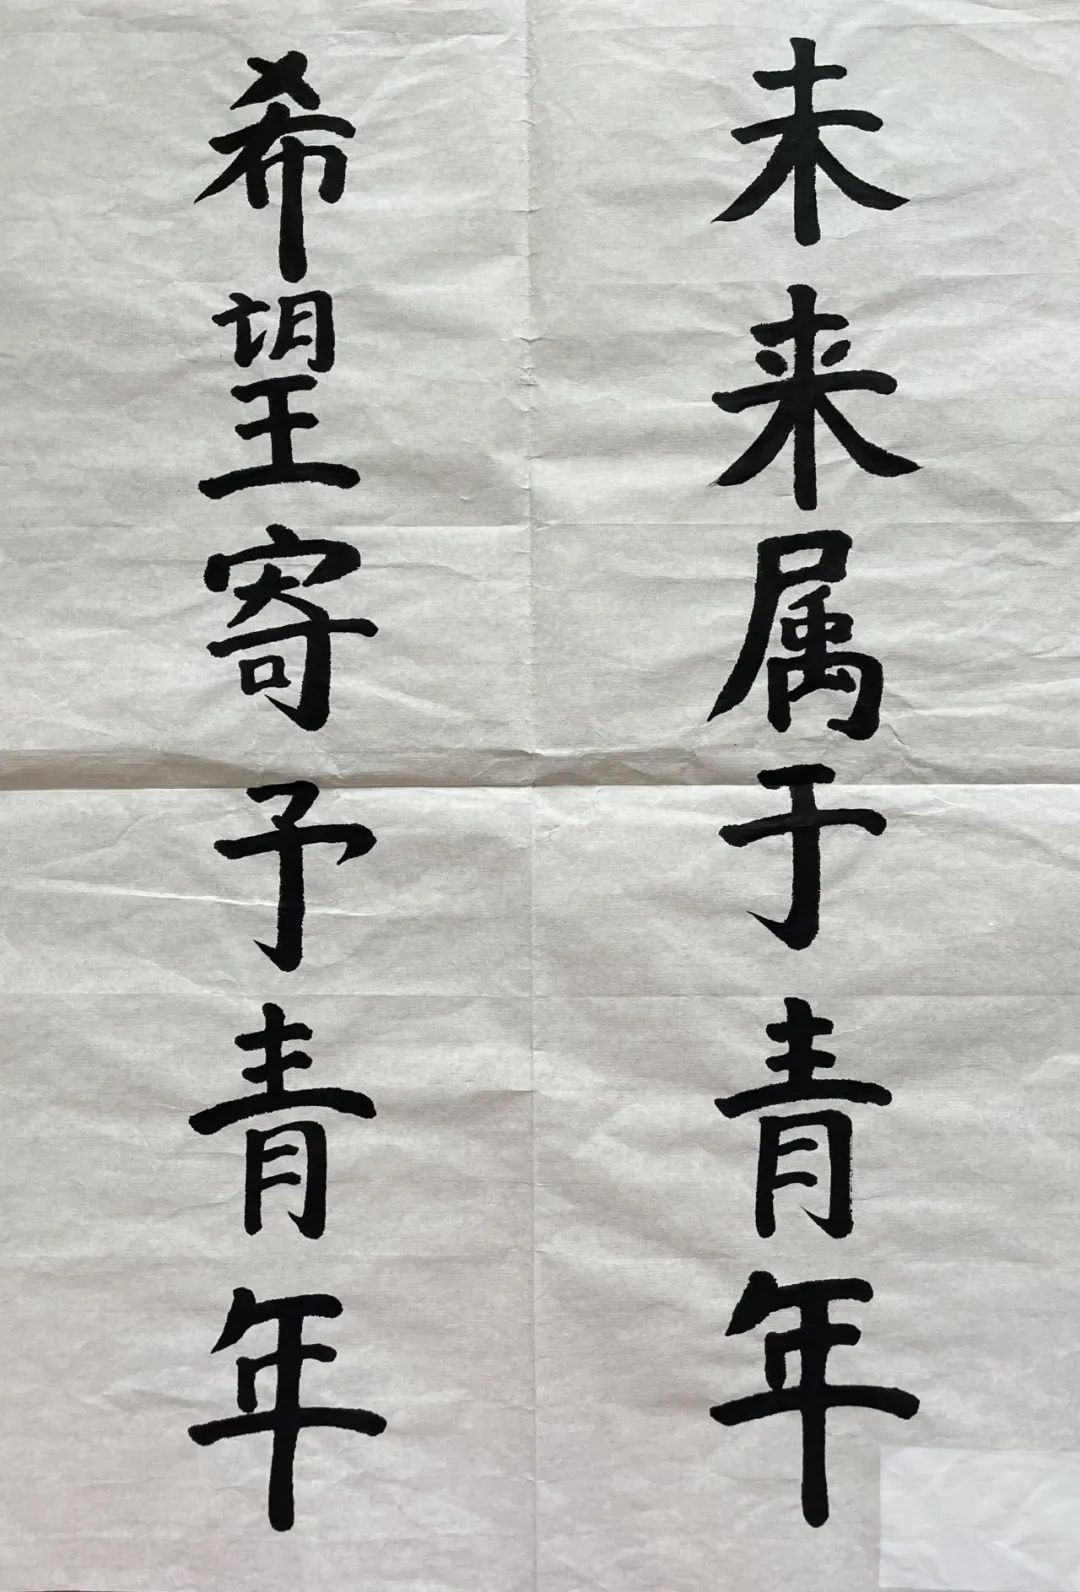 未来属于青年
希望寄予青年